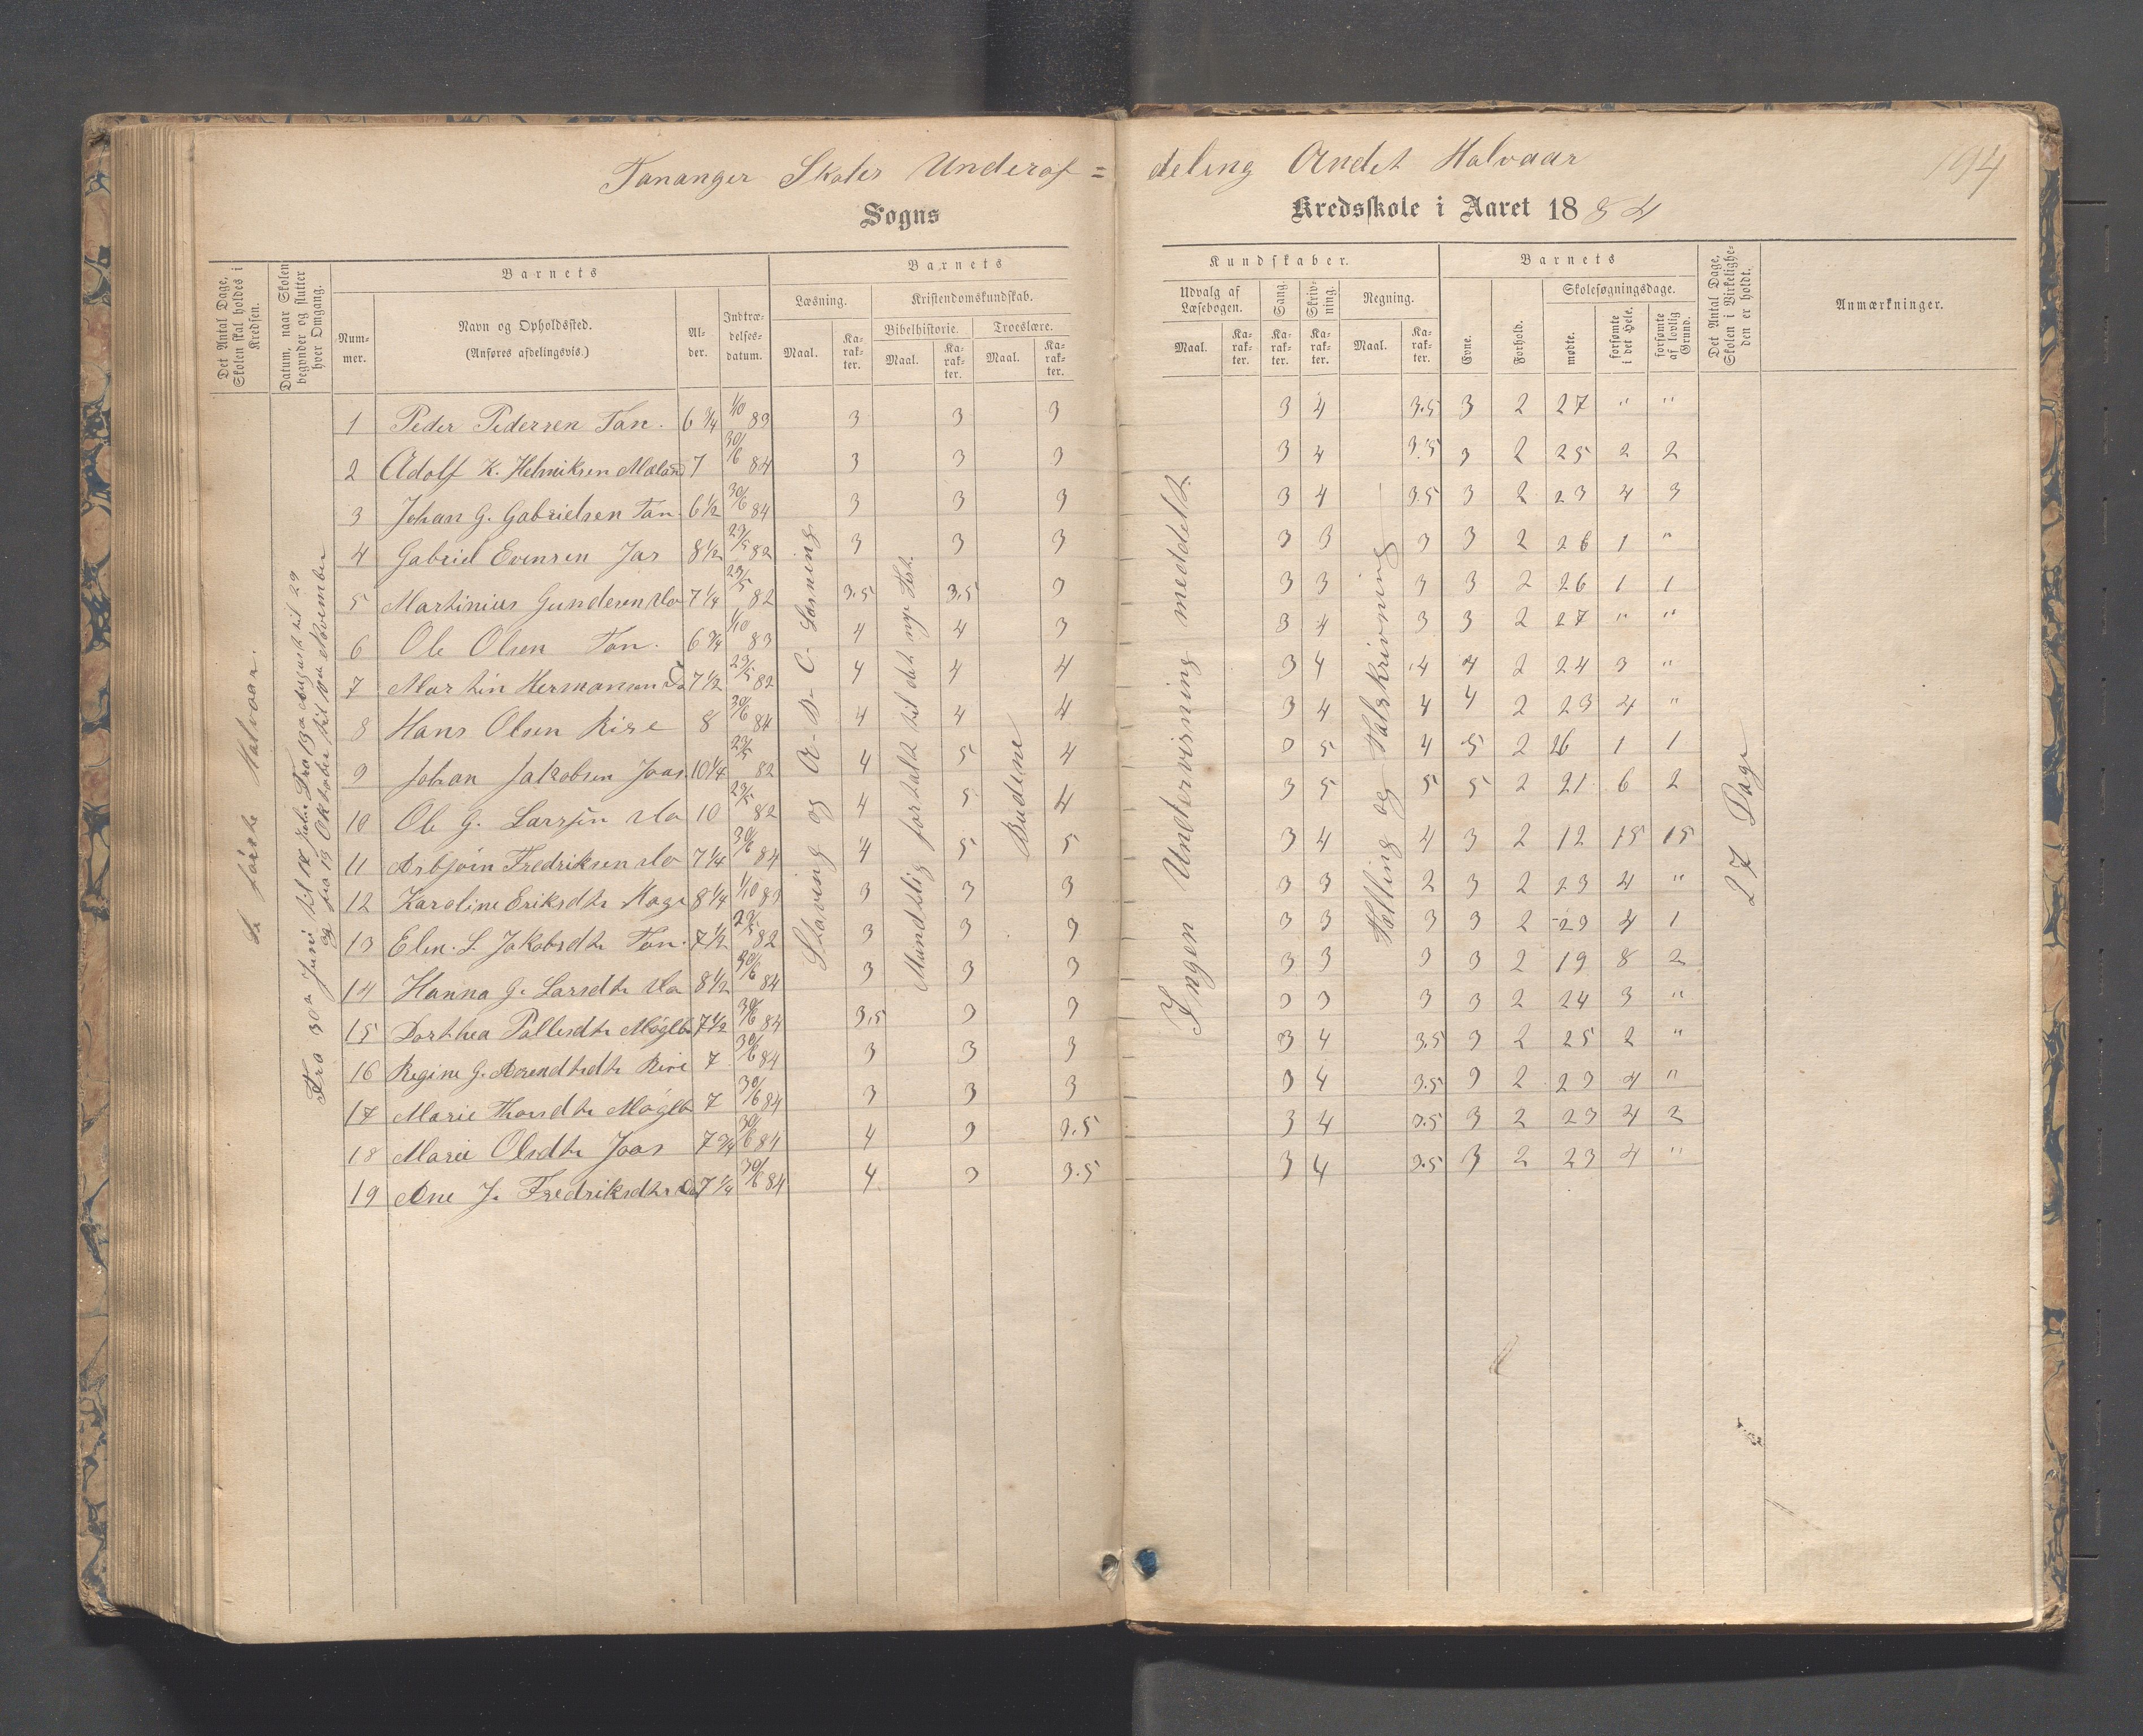 Tananger Skoles Underaf=
deling Andet Halvaar
194
Sogns
Kredsskole i Aaret 1884
Det Antal Dage, Skolen skal holdes i Kredsen.
Datum, naar Skolen begynder og slutter hver Omgang.
Barnets
Num-mer.
Navn og Opholdssted.
(Anføres afdelingsvis.)
Al-der.
Indtræ-delses-datum.
Barnets
Læsning.
Maal.
Ka-rak-ter.
Kristendomskundskab.
Bibelhistorie.
Maal.
Ka-rak-ter.
Troeslære.
Maal.
Ka-rak-ter.
Kundskaber.
Udvalg af Læsebogen.
Maal.
Ka-rak-ter.
Sang.
Ka-rak-ter.
Skriv-ning.
Ka-rak-ter.
Regning.
Maal.
Ka-rak-ter.
Barnets
Evne.
Forhold.
Skolesøgningsdage.
mødte.
forsømte i det Hele.
forsømte af lovlig Grund.
Det Antal Dage, Skolen i Virkelighe-den er holdt.
Anmærkninger.
Se første Halvaar.
Fra 30te Juni til 14 Juli. Fra 13de August til 29
og fra 19 Oktober til 10de November
Staving og A-B-C-Læsning
Mundtlig fortalt til det nye Test.
Budene
Ingen Undervisning meddelt
Tælling og Talskrivning
27 Dage
1 Peder Pedersen Tan. 6 3/4 1/10 83 3 3 3 3 4 3.5 3 2 27 " "
2 Adolf K. Helmiksen Mæland 7 30/6 84 3 3 3 3 4 3.5 3 2 25 2 2
3 Johan G. Gabrielsen Tan. 6 1/2 30/6 84 3 3 3 3 4 3.5 3 2 23 4 3
4 Gabriel Evensen Jas 8 1/2 23/5 82 3 3 3 3 3 3 3 2 26 1 "
5 Martinius Gundersen do 7 1/4 23/5 82 3.5 3.5 3 3 3 3 3 2 26 1 1
6 Ole Olsen Tan. 6 3/4 1/10 83 4 4 3 3 4 3 3 2 27 " "
7 Martin Hermansen do 7 1/2 23/5 82 4 4 4 3 4 4 4 2 24 3 "
8 Hans Olsen Risе 8 30/6 84 4 4 4 3 4 4 4 2 23 4 "
9 Johan Jakobsen Jaas 10 1/4 23/5 82 4 5 4 3 5 4 5 2 26 1 1
10 Ole G. Larssen do 10 23/5 82 4 5 4 3 5 5 5 2 21 6 2
11 Asbjørn Fredriksen do 7 1/4 30/6 84 4 5 5 3 4 4 3 2 12 15 15
12 Karoline Eriksdtr Hage 8 1/4 1/10 83 3 3 3 3 3 2 3 2 23 4 "
13 Elen. S. Jakobsdtr Tan. 7 1/2 23/5 82 3 3 3 3 3 3 3 2 23 4 1
14 Hanna G. Larsdtr do 8 1/2 30/6 84 3 3 3 3 3 3 3 2 19 8 2
15 Dorthea Pallesdtr Møgleb 7 1/2 30/6 84 3.5 3 3 3 3 3 3 2 24 3 "
16 Regine G. Arendtsdtr 7 30/6 84 3 3 3 3 4 3.5 3 2 25 2 "
17 Marie Thorsdtr Møgleb 7 30/6 84 3 3 3 3 4 3.5 3 2 23 4 "
18 Marie Olsdtr Jaas 7 3/4 30/6 84 4 3 3.5 3 4 3.5 3 2 23 4 2
19 Ane J. Fredriksdtr do 7 1/4 30/6 84 4 3 3.5 3 4 3.5 3 2 23 4 "